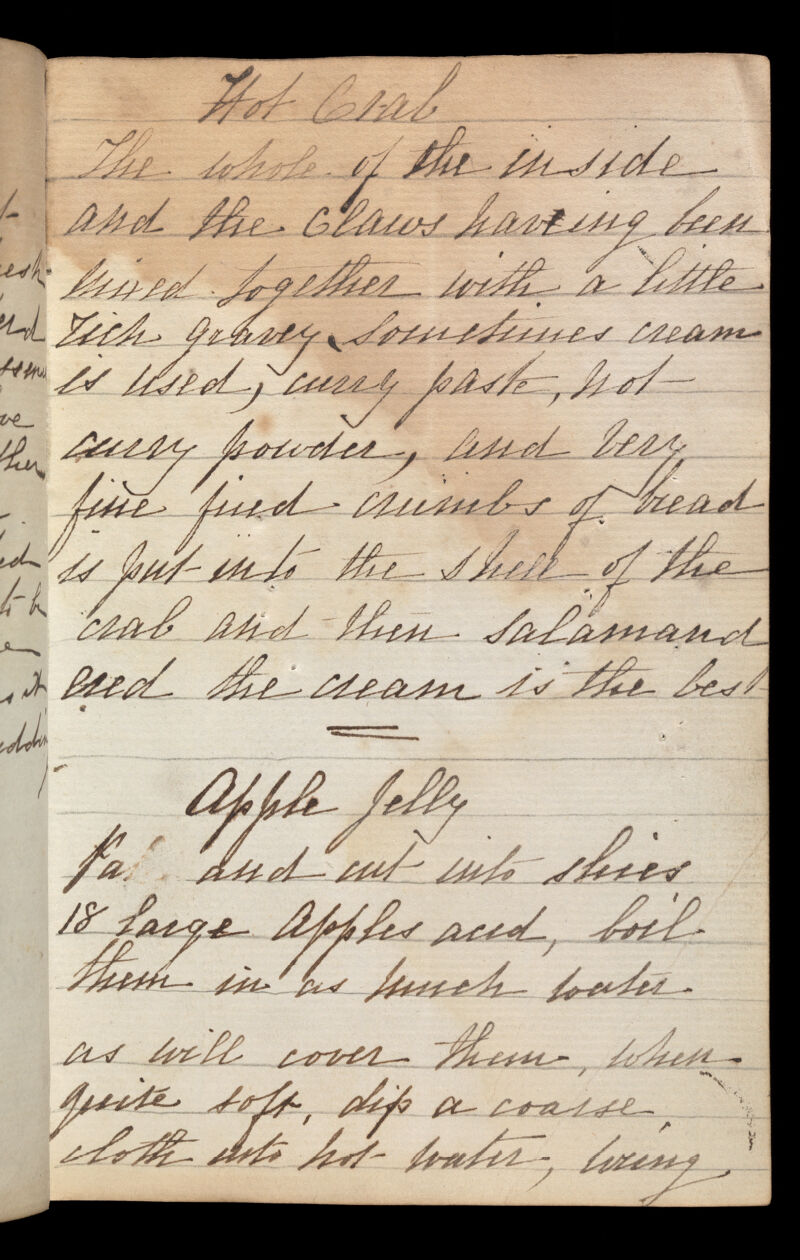 Hot Crab
The whole of the inside
and the claws having been
mixed together with a little
rich gravey, sometimes cream
is used, curry paste, not
curry powder, and very
fine fried crumbs of bread
is put into the shell of the
crab and then salamand
ered the cream is the best
Apple Jelly
and cut into slices
18 large Apples acid, boil
them in as much water
as will cover them, when
quite soft, dip a coarse
cloth into hot water, wring